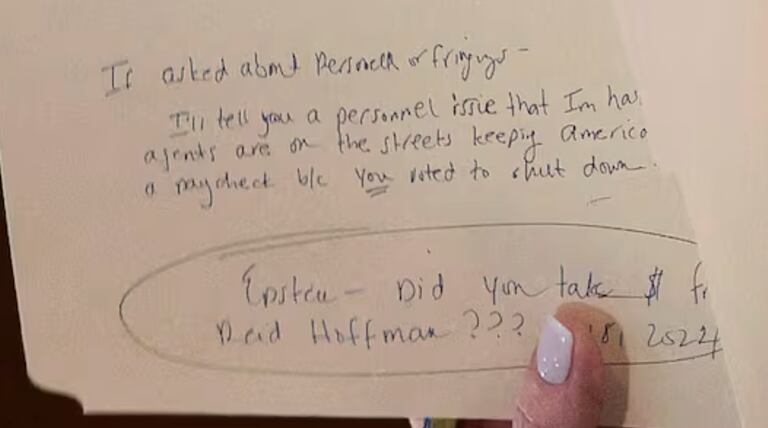 If asked about Personell or firings -
I'll tell you a personnel issie that Im has
agents are on the streets keeping America
a paycheck b/c you voted to shut down.
Epstein - Did you take $ fr
Reid Hoffman ???